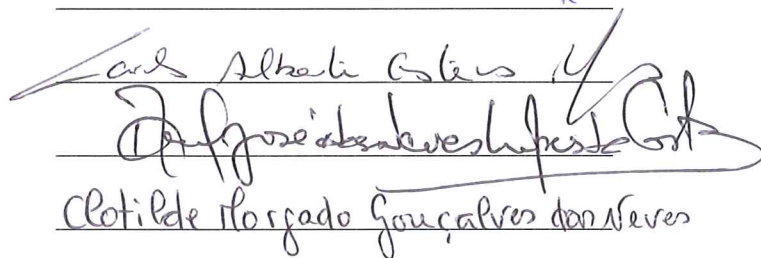 Carlos Alberto Esteves
José das Neves Lopes da Costa
Clotilde Morgado Gonçalves das Neves